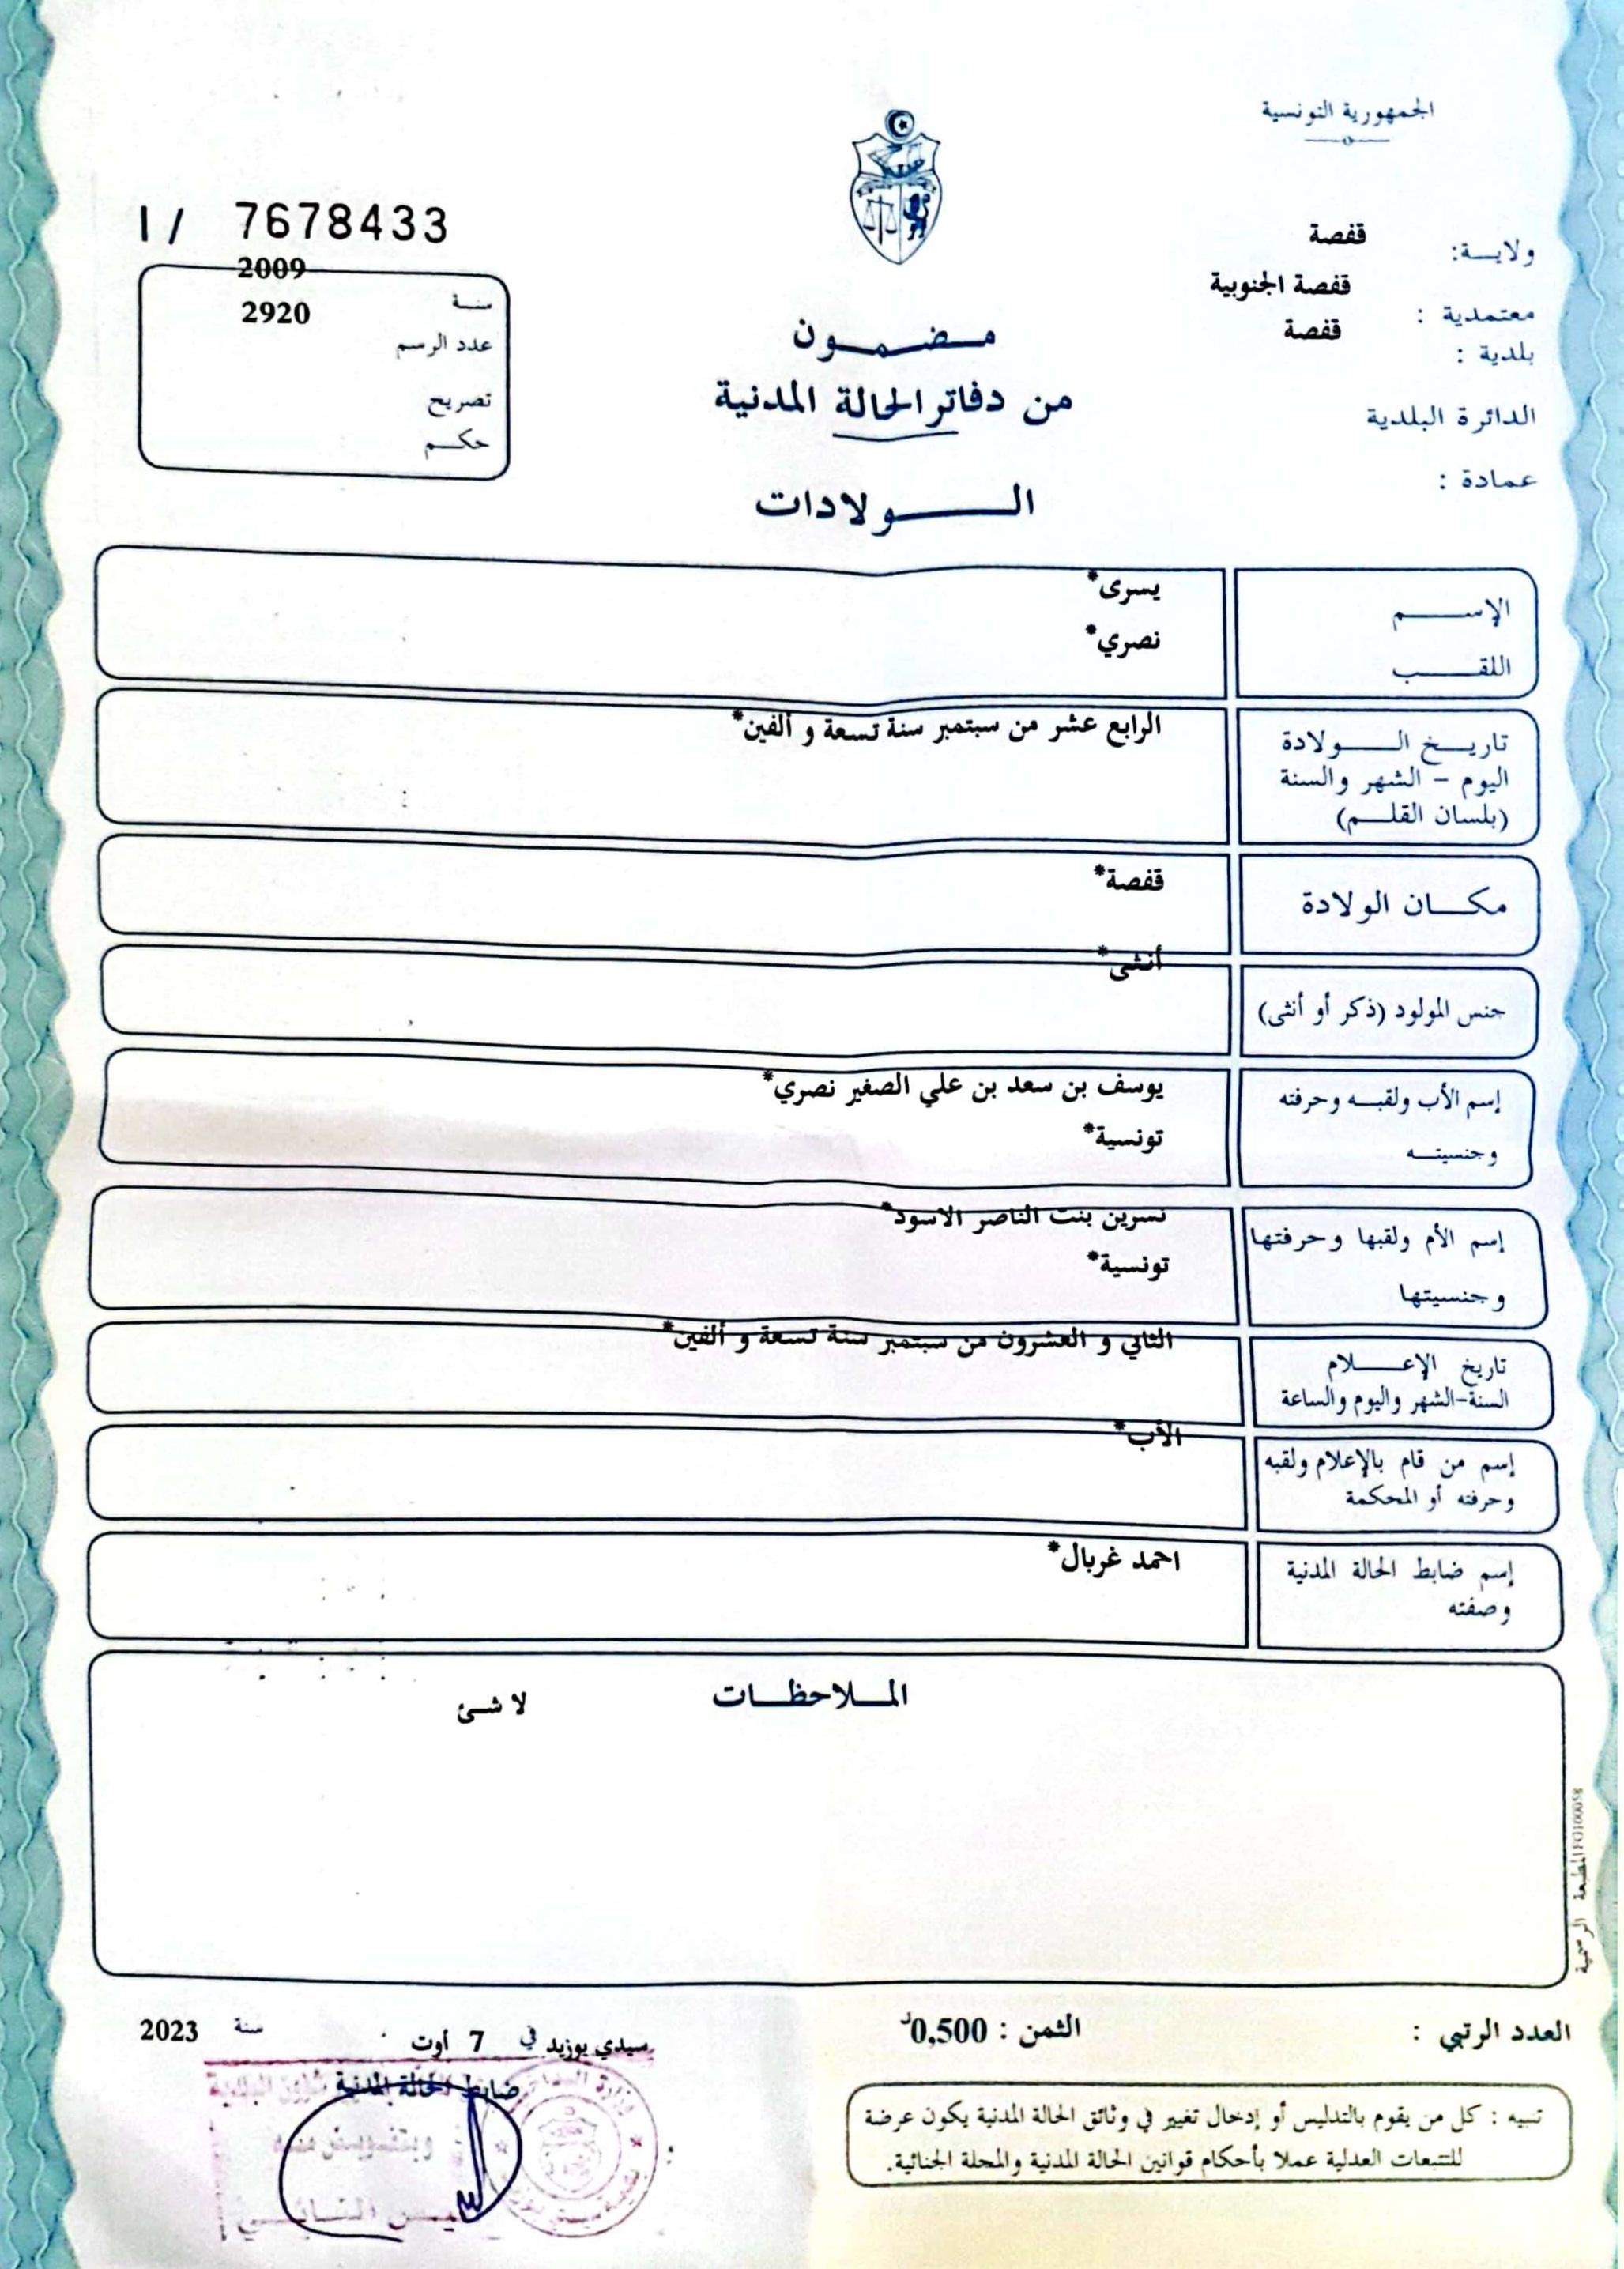 الجمهورية التونسية
ولايـــة: قفصة
معتمدية : قفصة الجنوبية
بلدية : قفصة
الدائرة البلدية
عمادة :
I / 7678433
سنـة 2009
عدد الرسم 2920
تصريح
حكــم
مـضـمـون
من دفاتر الحالة المدنية
الــولادات
الإســـم يسرى*
اللقـــب نصري*
تاريــخ الــــولادة الرابع عشر من سبتمبر سنة تسعة و ألفين*
اليوم – الشهر والسنة
(بلسان القلــم)
مكـــان الولادة قفصة*
جنس المولود (ذكر أو أنثى) أنثى*
إسم الأب ولقبــه وحرفته يوسف بن سعد بن علي الصغير نصري*
وجنسيتــه تونسية*
إسم الأم ولقبها وحرفتها نسرين بنت الناصر الاسود*
وجنسيتها تونسية*
تاريخ الإعــــلام الثاني و العشرون من سبتمبر سنة تسعة و ألفين*
السنة-الشهر واليوم والساعة
إسم من قام بالإعلام ولقبه الأب*
وحرفته أو المحكمة
إسم ضابط الحالة المدنية احمد غربال*
وصفته
المــلاحظــات
لا شئ
المطبعة الرسمية FG100058
العدد الرتبي :
الثمن : 0,500د
سيدي بوزيد في 7 أوت سنة 2023
ضابط الحالة المدنية
وبتفويض منه
تنبيه : كل من يقوم بالتدليس أو إدخال تغيير في وثائق الحالة المدنية يكون عرضة
للتتبعات العدلية عملا بأحكام قوانين الحالة المدنية والمجلة الجنائية.